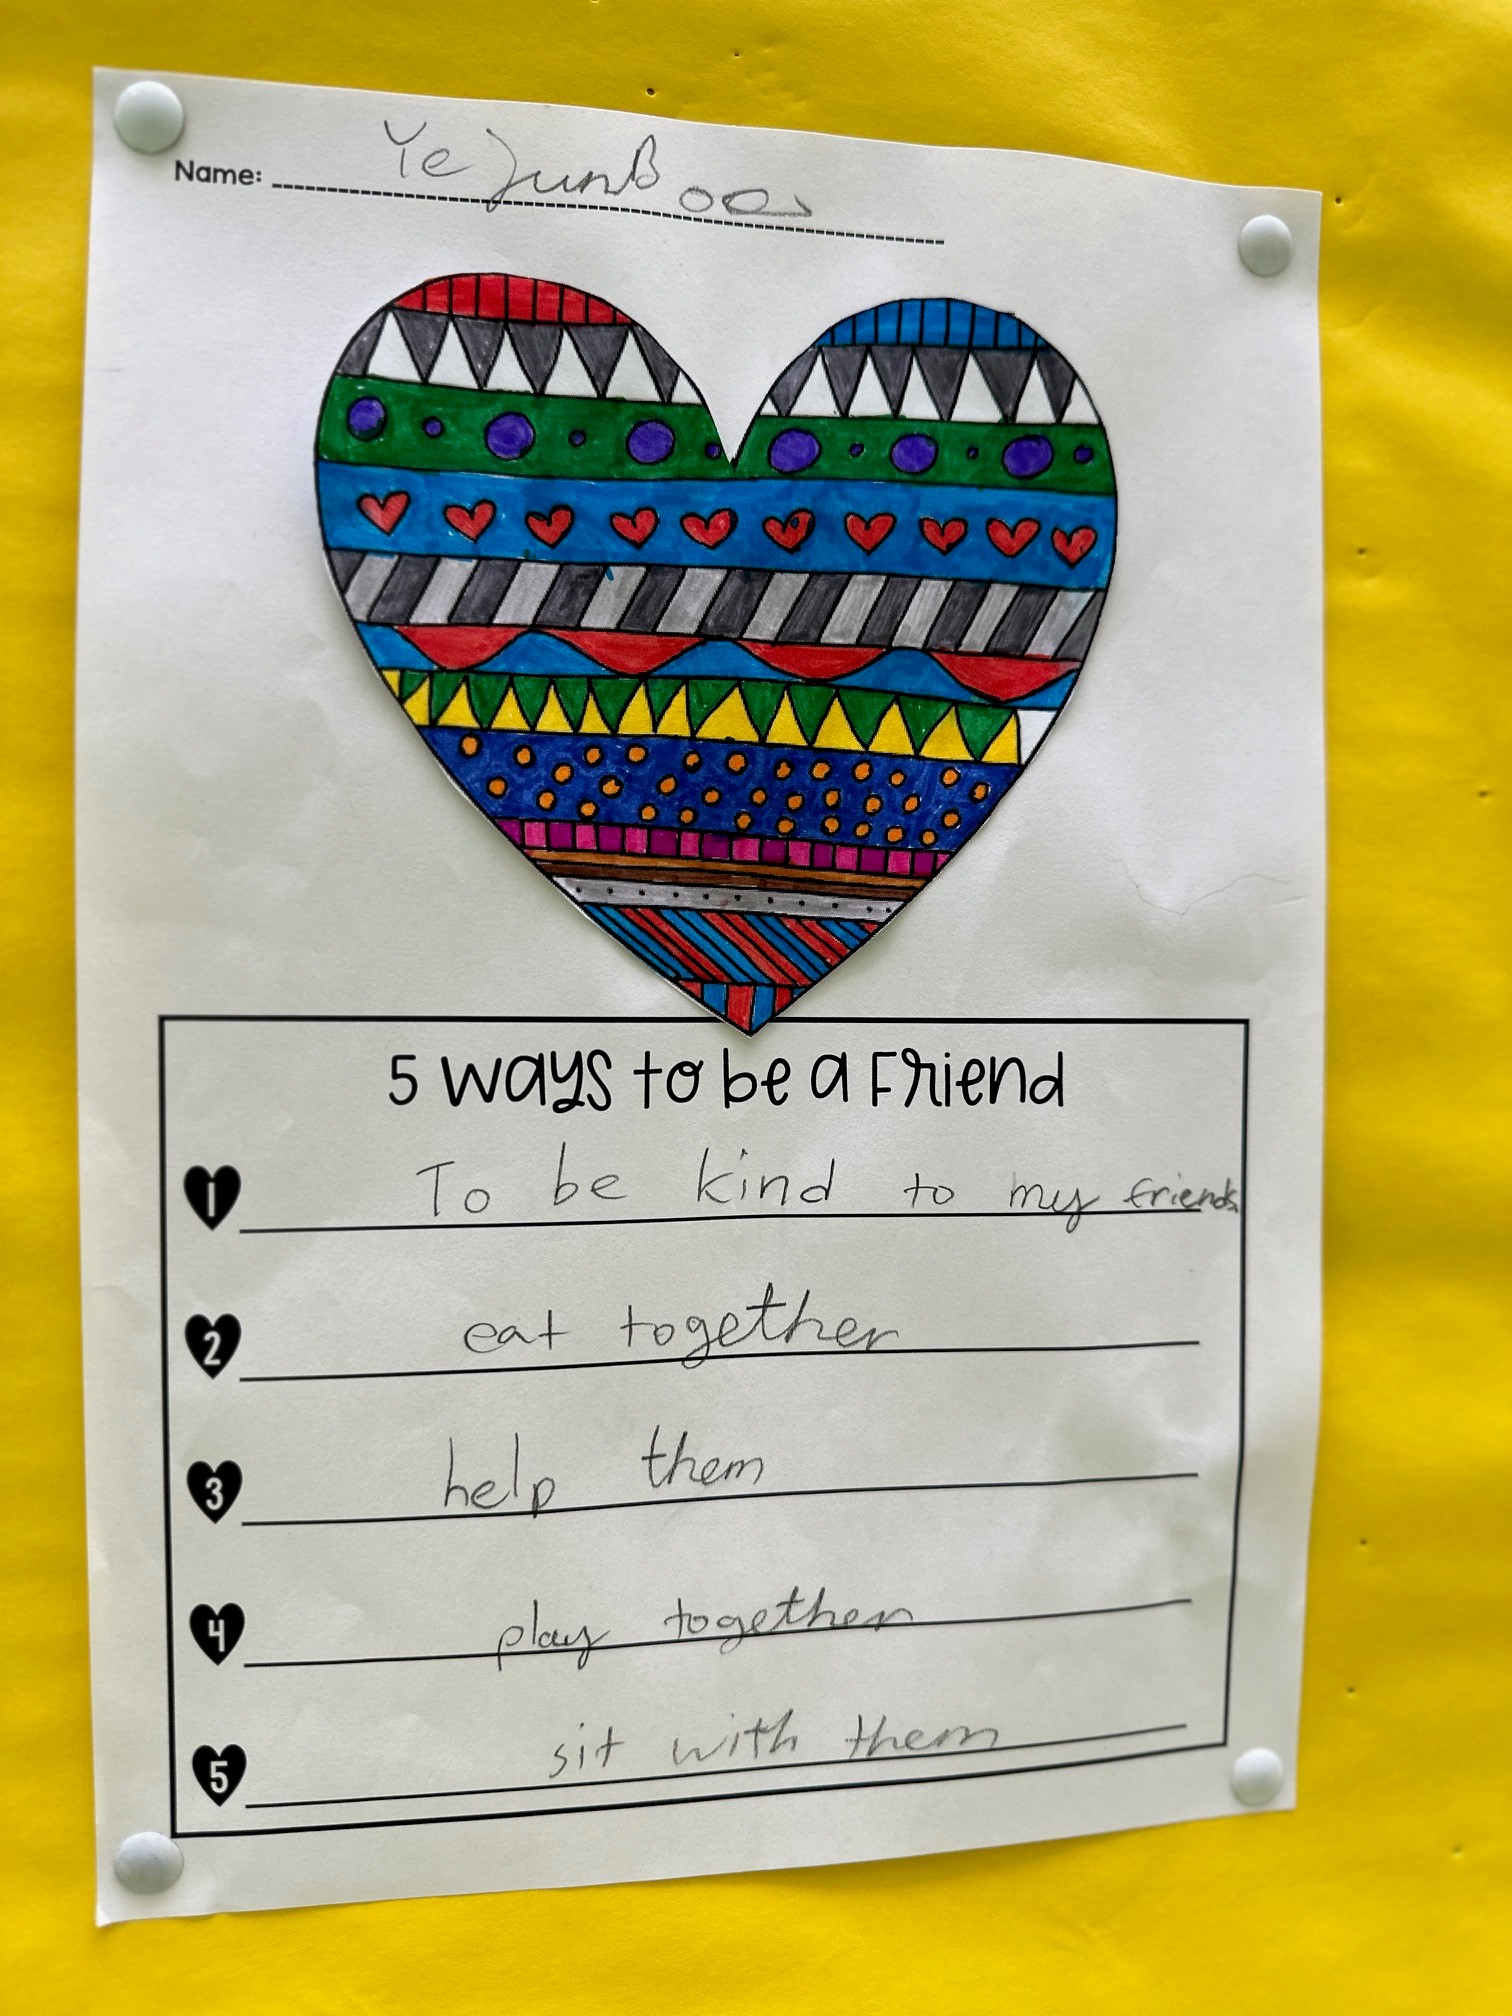 Name: Ye Jun B
5 Ways to be a Friend
1 To be kind to my friends.
2 eat together
3 help them
4 play together
5 sit with them